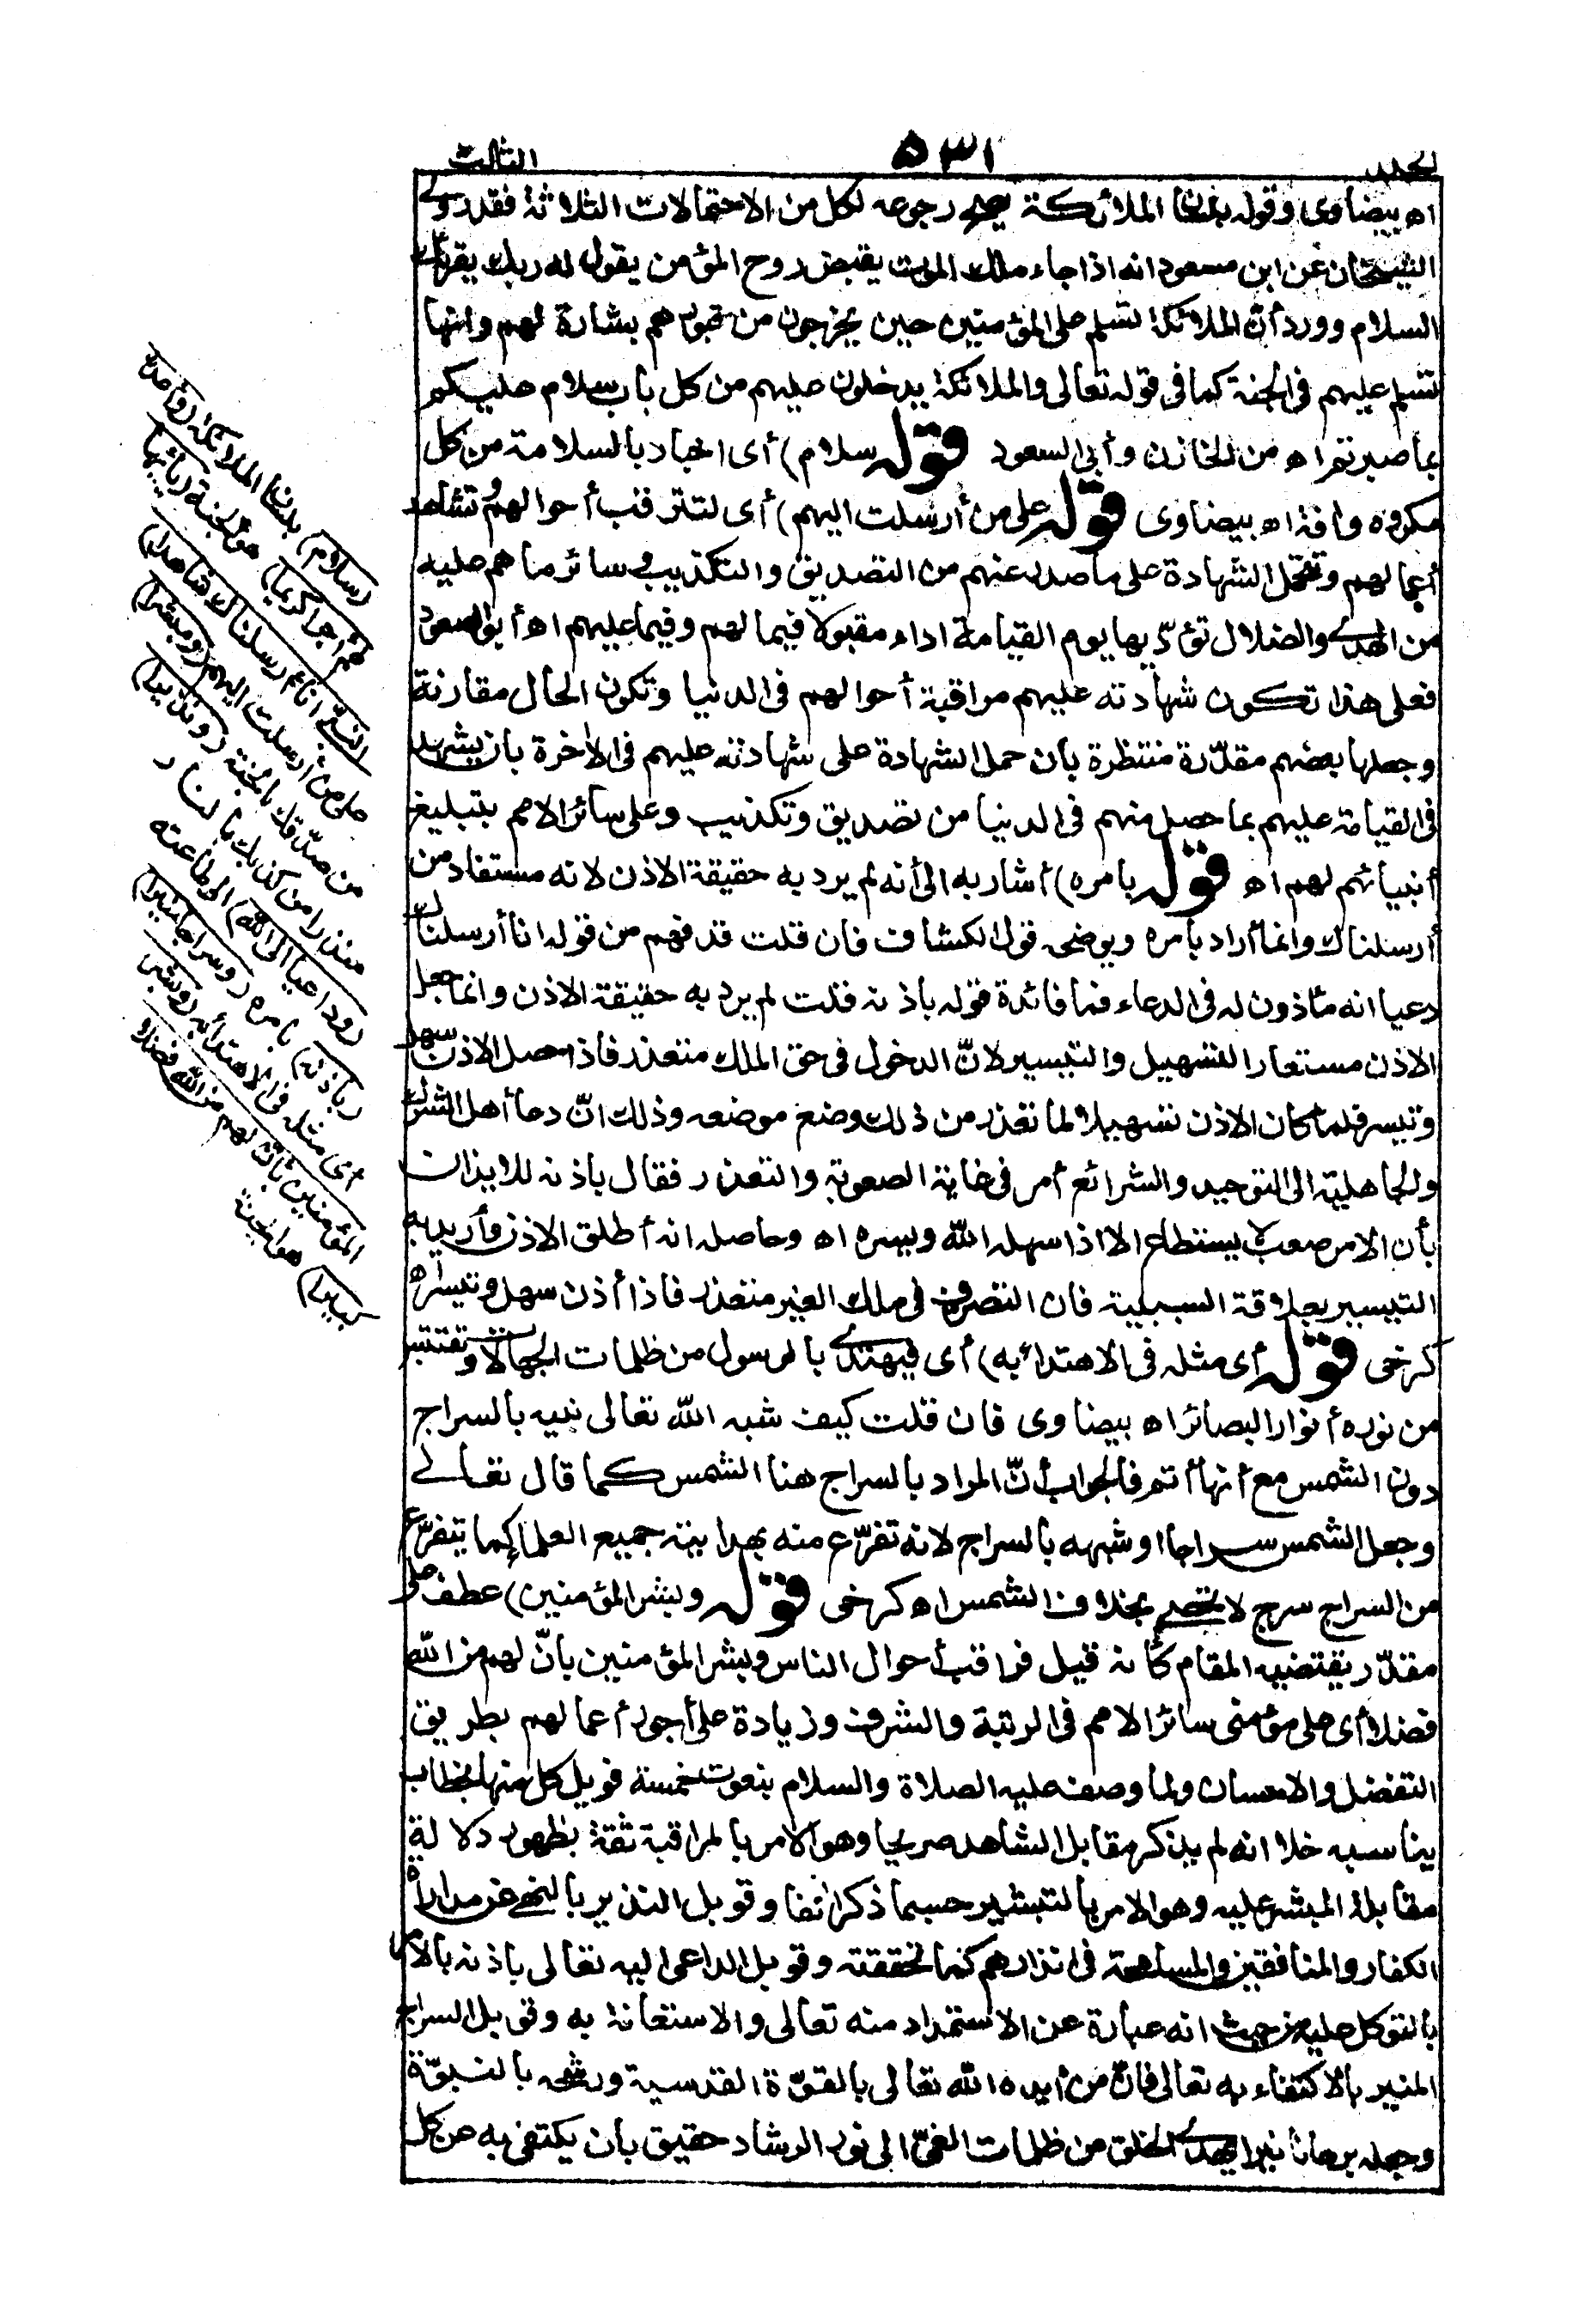 الجلد
٥٣١
الثالث
اه بيضاوى وقوله بلسان الملائكة يصح رجوعه لكل من الاحتمالات الثلاثة فقد روى
الشيخان عن ابن مسعود انه اذا جاء ملك الموت يقبض روح المؤمن يقول له ربك يقرئك
السلام وورد أن الملائكة تسلم على المؤمنين حين يخرجون من قبورهم بشارة لهم وانها
تسلم عليهم فى الجنة كما فى قوله تعالى والملائكة يدخلون عليهم من كل باب سلام عليكم
بما صبرتم اه من الخازن وأبى السعود قوله سلام) أى اخبار بالسلامة من كل
مكروه وافة اه بيضاوى قوله على من أرسلت اليهم) أى لتترقب أحوالهم وتشاهد
أعمالهم وتتحمل الشهادة على ما صدر عنهم من التصديق والتكذيب وسائر ما هم عليه
من الهدى والضلال تؤدّيها يوم القيامة اداء مقبولا فيما لهم وفيما عليهم اه أبو السعود
فعلى هذا تكون شهادته عليهم مراقبة أحوالهم فى الدنيا وتكون الحال مقارنة
وجعلها بعضهم مقدّرة منتظرة بان حمل الشهادة على شهادته عليهم فى الاخرة بان يشهد
فى القيامة عليهم بما حصل منهم فى الدنيا من تصديق وتكذيب وعلى سائر الامم بتبليغ
أنبيائهم لهم اه قوله بامره) أشار به الى أنه لم يرد به حقيقة الاذن لانه مستفاد من
أرسلناك وانما أراد بأمره ويوضحه قول الكشاف فان قلت قد فهم من قوله انا أرسلناك
دعيا انه مأذون له فى الدعاء فما فائدة قوله باذنه قلت لم يرد به حقيقة الاذن وانما جعل
الاذن مستعارا للتسهيل والتيسير لانّ الدخول فى حق الملك متعذر فاذا حصل الاذن سهل
وتيسر فلما كان الاذن تسهيلا لما تعذر من ذلك وضع موضعه وذلك انّ دعا أهل الشرك
والجاهلية الى التوحيد والشرائع أمر فى غاية الصعوبة والتعذر فقال باذنه للايذان
بأن الامر صعب لا يستطاع الا اذا سهله الله ويسره اه وحاصله انه أطلق الاذن وأريد به
التيسير بعلاقة السببية فان التصرف فى ملك الغير متعذر فاذا أذن سهل وتيسر اه
كرخى قوله أى مثله فى الاهتداء به) أى فيهتدى بالرسول من ظلمات الجهالة وتقتبس
من نوره أنوار البصائر اه بيضاوى فان قلت كيف شبه الله تعالى نبيه بالسراج
دون الشمس مع أنها أتم فالجواب أنّ المراد بالسراج هنا الشمس كما قال تعالى
وجعل الشمس سراجا او شبهه بالسراج لانه تفرّع منه بهدايته جميع العلماء كما يتفرّع
من السراج سرج لا تحصى بخلاف الشمس اه كرخى قوله وبشر المؤمنين) عطف على
مقدّر يقتضيه المقام كأنه قيل فراقب أحوال الناس وبشر المؤمنين بانّ لهم من الله
فضلا أى على مؤمنى سائر الامم فى الرتبة والشرف وزيادة على أجور أعمالهم بطريق
التفضل والاحسان ولما وصف عليه الصلاة والسلام بنعوت خمسة قوبل كل منها بخطاب
يناسبه خلا انه لم يذكر مقابل الشاهد صريحا وهو الامر بالمراقبة ثقة بظهور دلالة
مقابلة المبشر عليه وهو الامر بالتبشير حسبما ذكر انفا وقوبل النذير بالنهى عن مداراة
الكفار والمنافقين والمسامحة فى انذارهم كما تحققته وقوبل الداعى اليه تعالى باذنه بالامر
بالتوكل عليه من حيث انه عبارة عن الاستمداد منه تعالى والاستعانة به وقوبل السراج
المنير بالاكتفاء به تعالى فانّ من أيده الله تعالى بالقوّة القدسية ورشحه بالنبوّة
وجعله برهانا نيرا يهدى الخلق من ظلمات الغىّ الى نور الرشاد حقيق بان يكتفى به عن كل
(سلام) بلسان الملائكة (وأعدّ
لهم أجرا كريما) هو الجنة (يأيها
النبىّ انا أرسلناك شاهدا)
على من أرسلت اليهم (ومبشرا)
من صدّقك بالجنة (ونذيرا)
منذرا من كذبك بالنار
(وداعيا الى الله) الى طاعته
(باذنه) بأمره (وسراجا منيرا)
أى مثله فى الاهتداء به (وبشر
المؤمنين بأن لهم من الله فضلا
كبيرا) هو الجنة